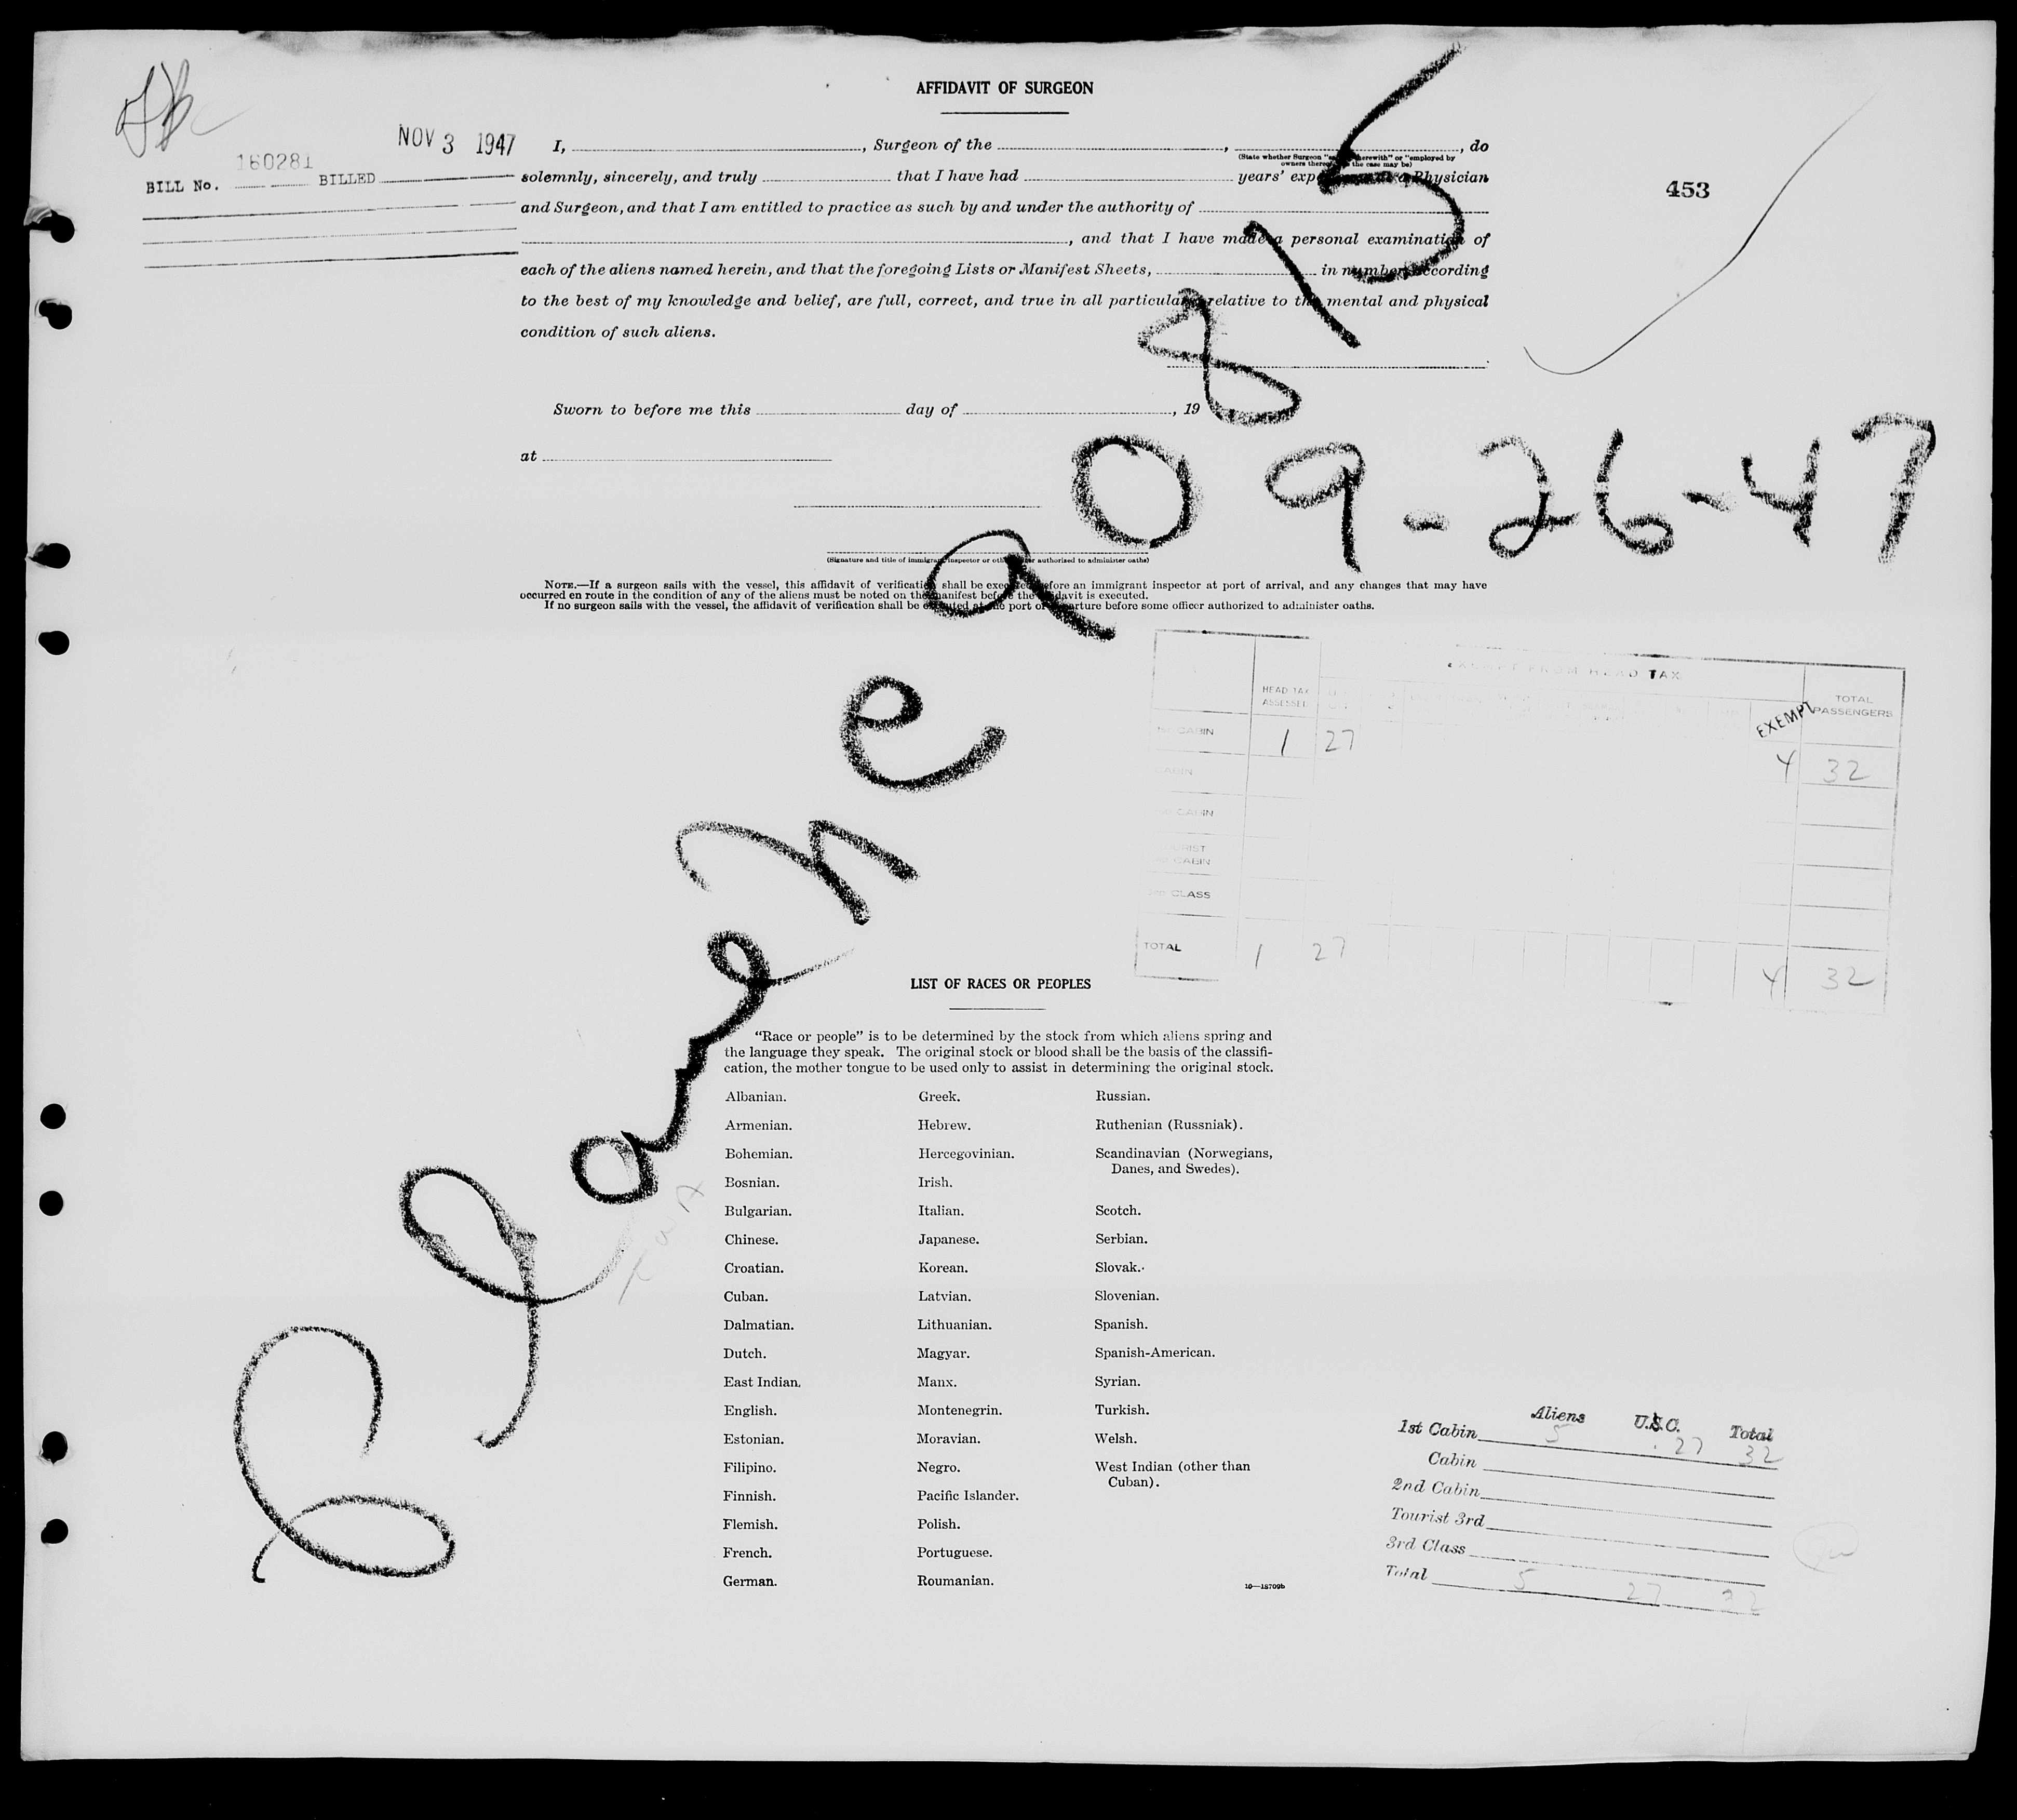 AFFIDAVIT OF SURGEON
NOV 3 1947
160281
BILL No. BILLED
453
I, , Surgeon of the , , do
(State whether Surgeon "sailing therewith" or "employed by
owners thereof," as the case may be)
solemnly, sincerely, and truly that I have had years' experience as a Physician
and Surgeon, and that I am entitled to practice as such by and under the authority of
, and that I have made a personal examination of
each of the aliens named herein, and that the foregoing Lists or Manifest Sheets, in number, according
to the best of my knowledge and belief, are full, correct, and true in all particulars relative to the mental and physical
condition of such aliens.
Sworn to before me this day of , 19
at
(Signature and title of immigrant inspector or other officer authorized to administer oaths)
NOTE.—If a surgeon sails with the vessel, this affidavit of verification shall be executed before an immigrant inspector at port of arrival, and any changes that may have
occurred en route in the condition of any of the aliens must be noted on the manifest before the affidavit is executed.
If no surgeon sails with the vessel, the affidavit of verification shall be executed at the port of departure before some officer authorized to administer oaths.
815
09-26-47
HEAD TAX
ASSESSED
EXEMPT FROM HEAD TAX
EXEMPT
TOTAL
PASSENGERS
CABIN 1 27
4 32
CABIN
CABIN
CLASS
TOTAL 1 27 4 32
LIST OF RACES OR PEOPLES
"Race or people" is to be determined by the stock from which aliens spring and
the language they speak. The original stock or blood shall be the basis of the classifi-
cation, the mother tongue to be used only to assist in determining the original stock.
Albanian.
Armenian.
Bohemian.
Bosnian.
Bulgarian.
Chinese.
Croatian.
Cuban.
Dalmatian.
Dutch.
East Indian.
English.
Estonian.
Filipino.
Finnish.
Flemish.
French.
German.
Greek.
Hebrew.
Hercegovinian.
Irish.
Italian.
Japanese.
Korean.
Latvian.
Lithuanian.
Magyar.
Manx.
Montenegrin.
Moravian.
Negro.
Pacific Islander.
Polish.
Portuguese.
Roumanian.
Russian.
Ruthenian (Russniak).
Scandinavian (Norwegians,
Danes, and Swedes).
Scotch.
Serbian.
Slovak.
Slovenian.
Spanish.
Spanish-American.
Syrian.
Turkish.
Welsh.
West Indian (other than
Cuban).
16—18709b
Aliens U.S.C. Total
1st Cabin 5 27 32
Cabin
2nd Cabin
Tourist 3rd
3rd Class
Total 5 27 32